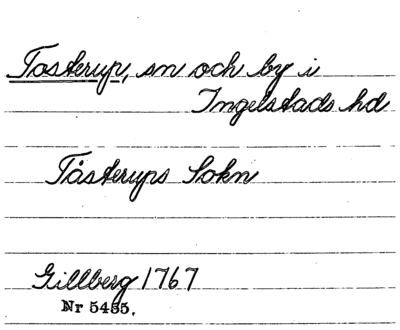 Tosterup, sn och by i
Ingelstads hd
Tåsterups Sokn
Gillberg 1767
Nr 5455.